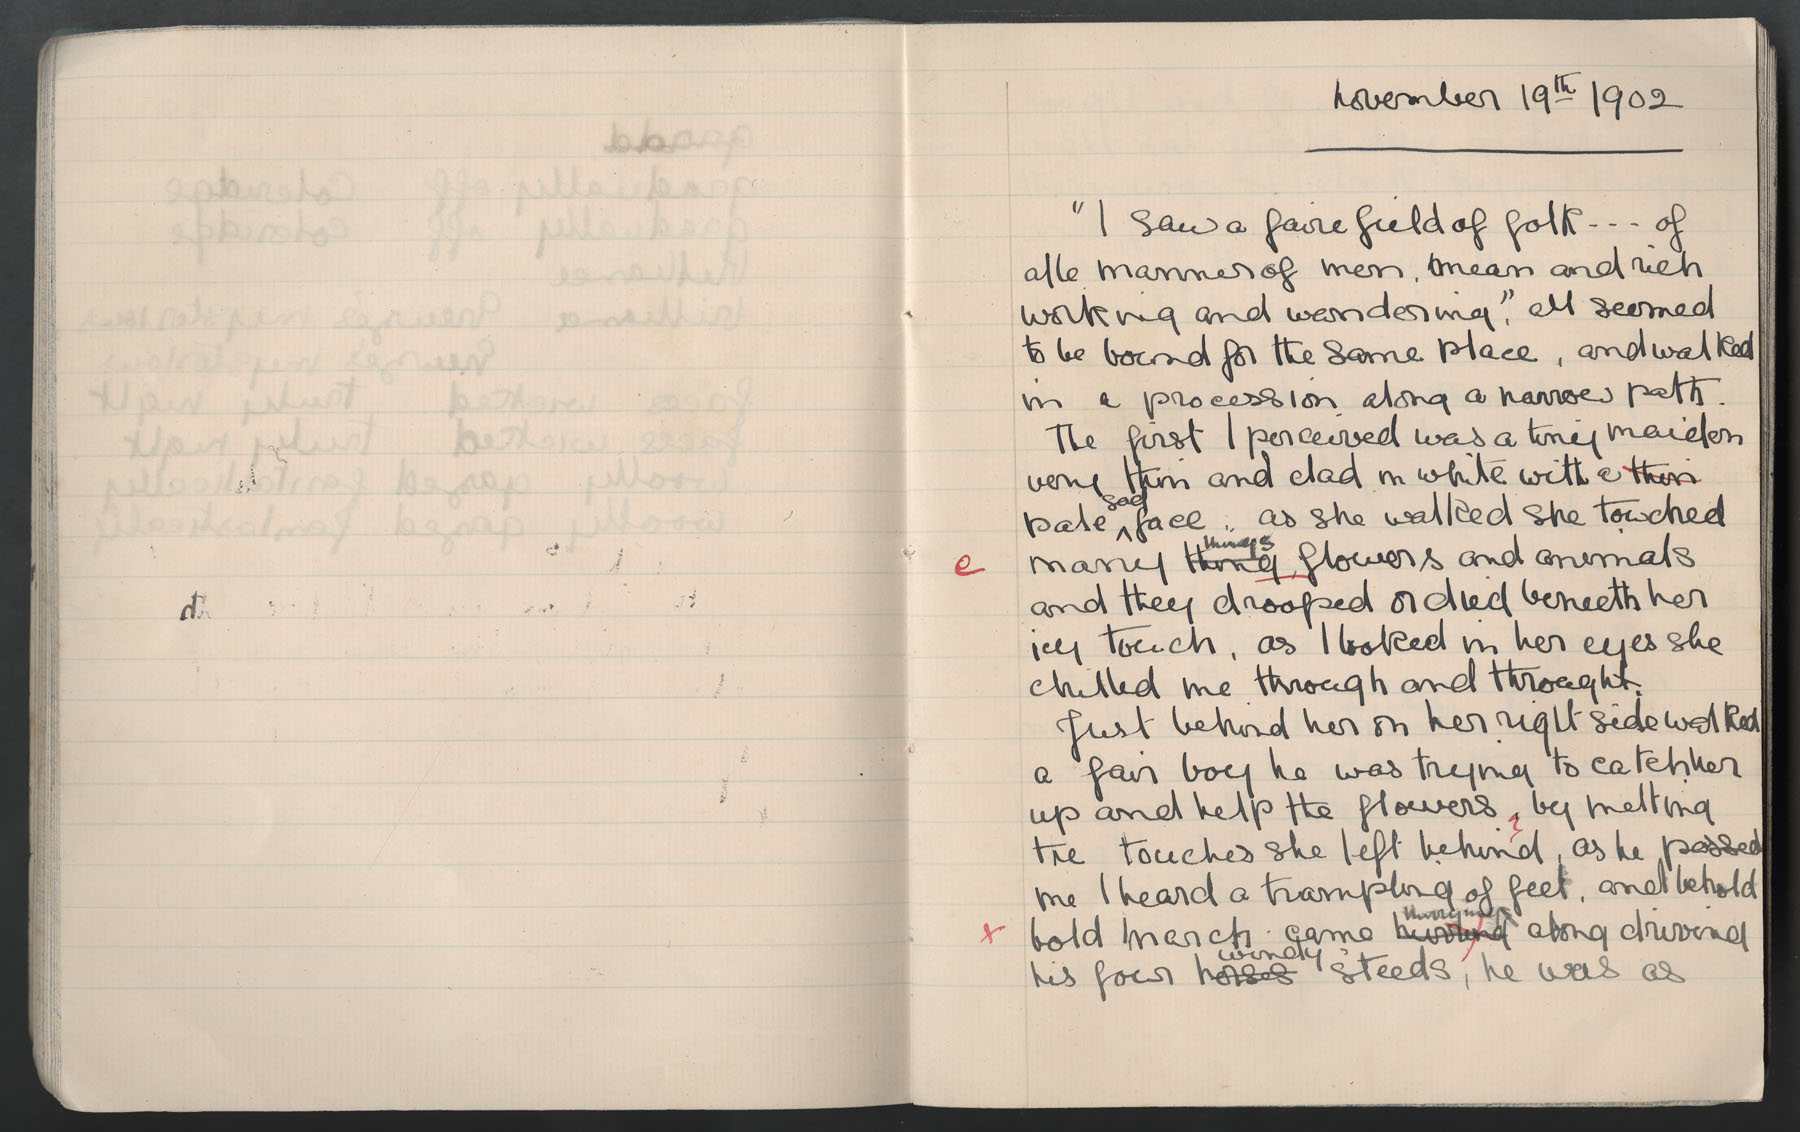 November 19th 1902
"I saw a faire field of folk --- of
alle manner of men, mean and rich
working and wandering", all seemed
to be bound for the same place, and walked
in a procession along a narrow path.
The first I perceived was a tiny maiden
very thin and clad in white with a thin
sad
pale ^ face .. as she walked she touched
things
e many thing, flowers and animals
and they drooped or died beneath her
icy touch, as I looked in her eyes she
chilled me through and throught.
Just behind her on her right side walked
a fair boy he was trying to catch her
up and help the flowers, by melting
the touches she left behind, as he passed
me I heard a trampling of feet, and behold
hurrying
x bold March came hurring along driving
windy
his four horses steeds, he was as